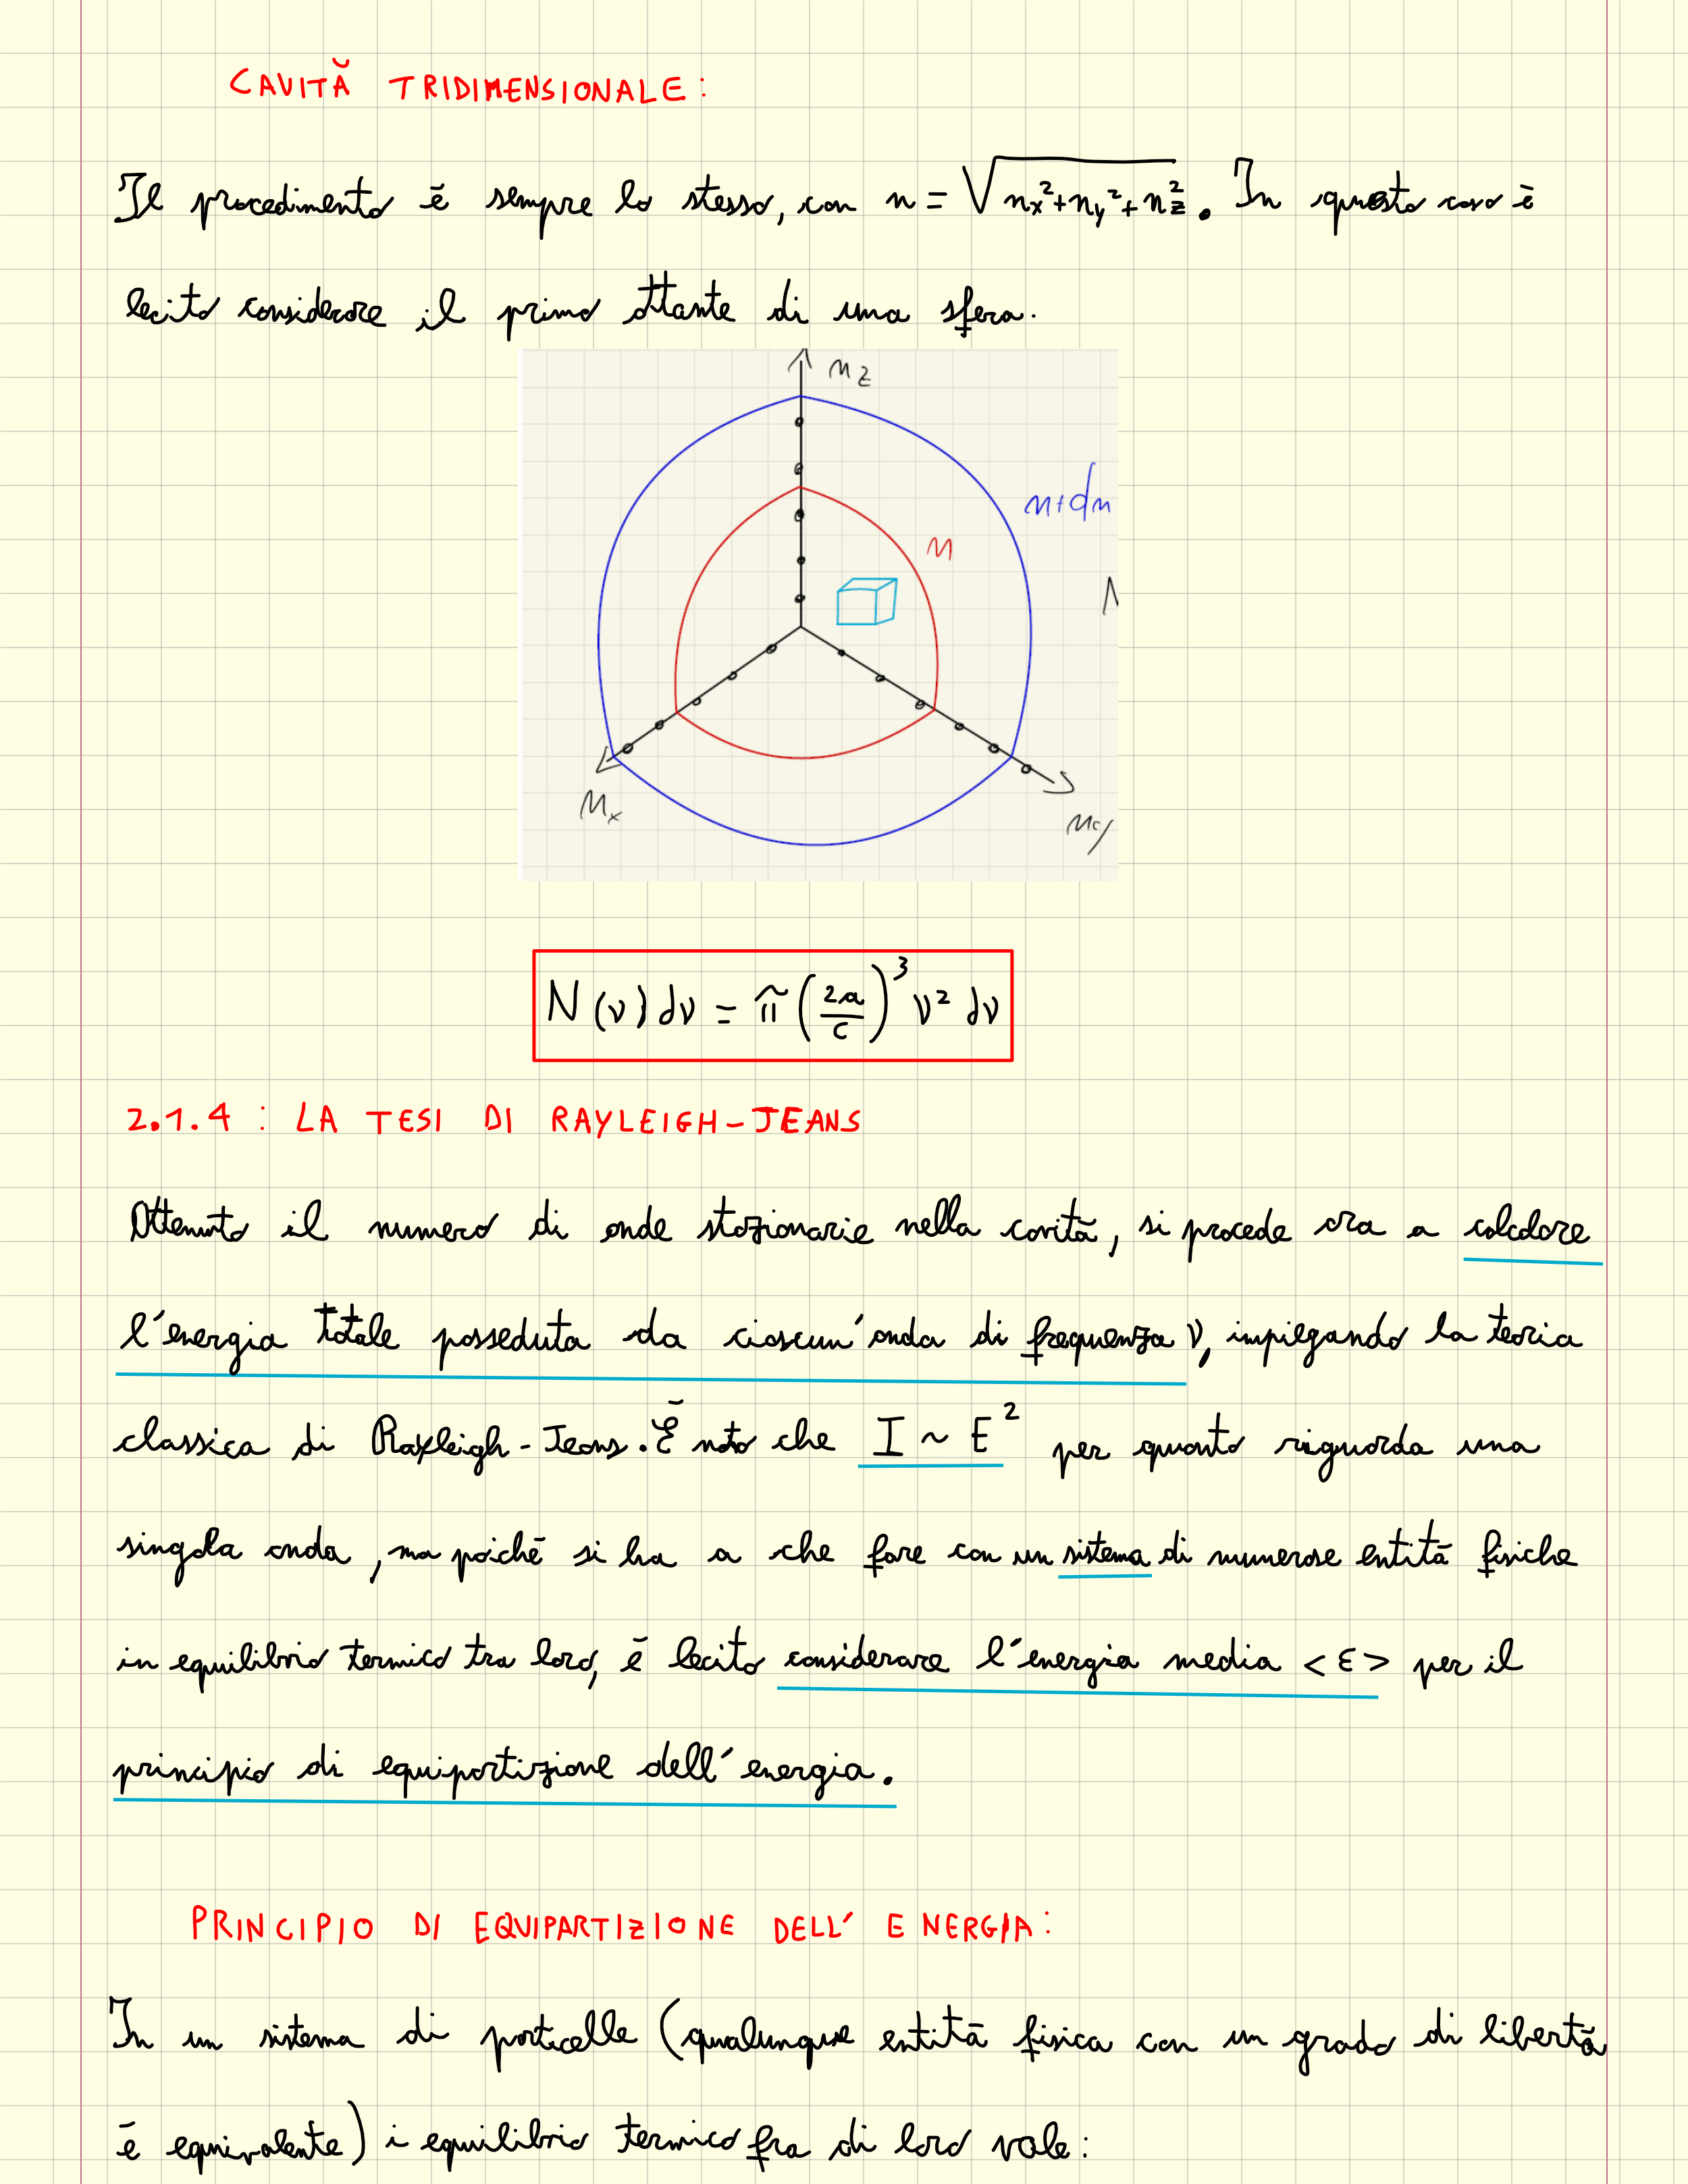 CAVITÀ TRIDIMENSIONALE:
Il procedimento è sempre lo stesso, con n = √(nx²+ny²+nz²). In questo caso è
lecito considerare il primo ottante di una sfera.
nz
n+dn
n
nx
ny
N(ν)dν = π(2a/c)³ ν² dν
2.1.4 : LA TESI DI RAYLEIGH-JEANS
Ottenuto il numero di onde stazionarie nella cavità, si procede ora a calcolare
l'energia totale posseduta da ciascun'onda di frequenza ν, impiegando la teoria
classica di Rayleigh-Jeans. È noto che I ~ E² per quanto riguarda una
singola onda, ma poiché si ha a che fare con un sistema di numerose entità fisiche
in equilibrio termico tra loro, è lecito considerare l'energia media <ε> per il
principio di equipartizione dell'energia.
PRINCIPIO DI EQUIPARTIZIONE DELL'ENERGIA:
In un sistema di particelle (qualunque entità fisica con un grado di libertà
è equivalente) i equilibrio termico fra di loro vale: